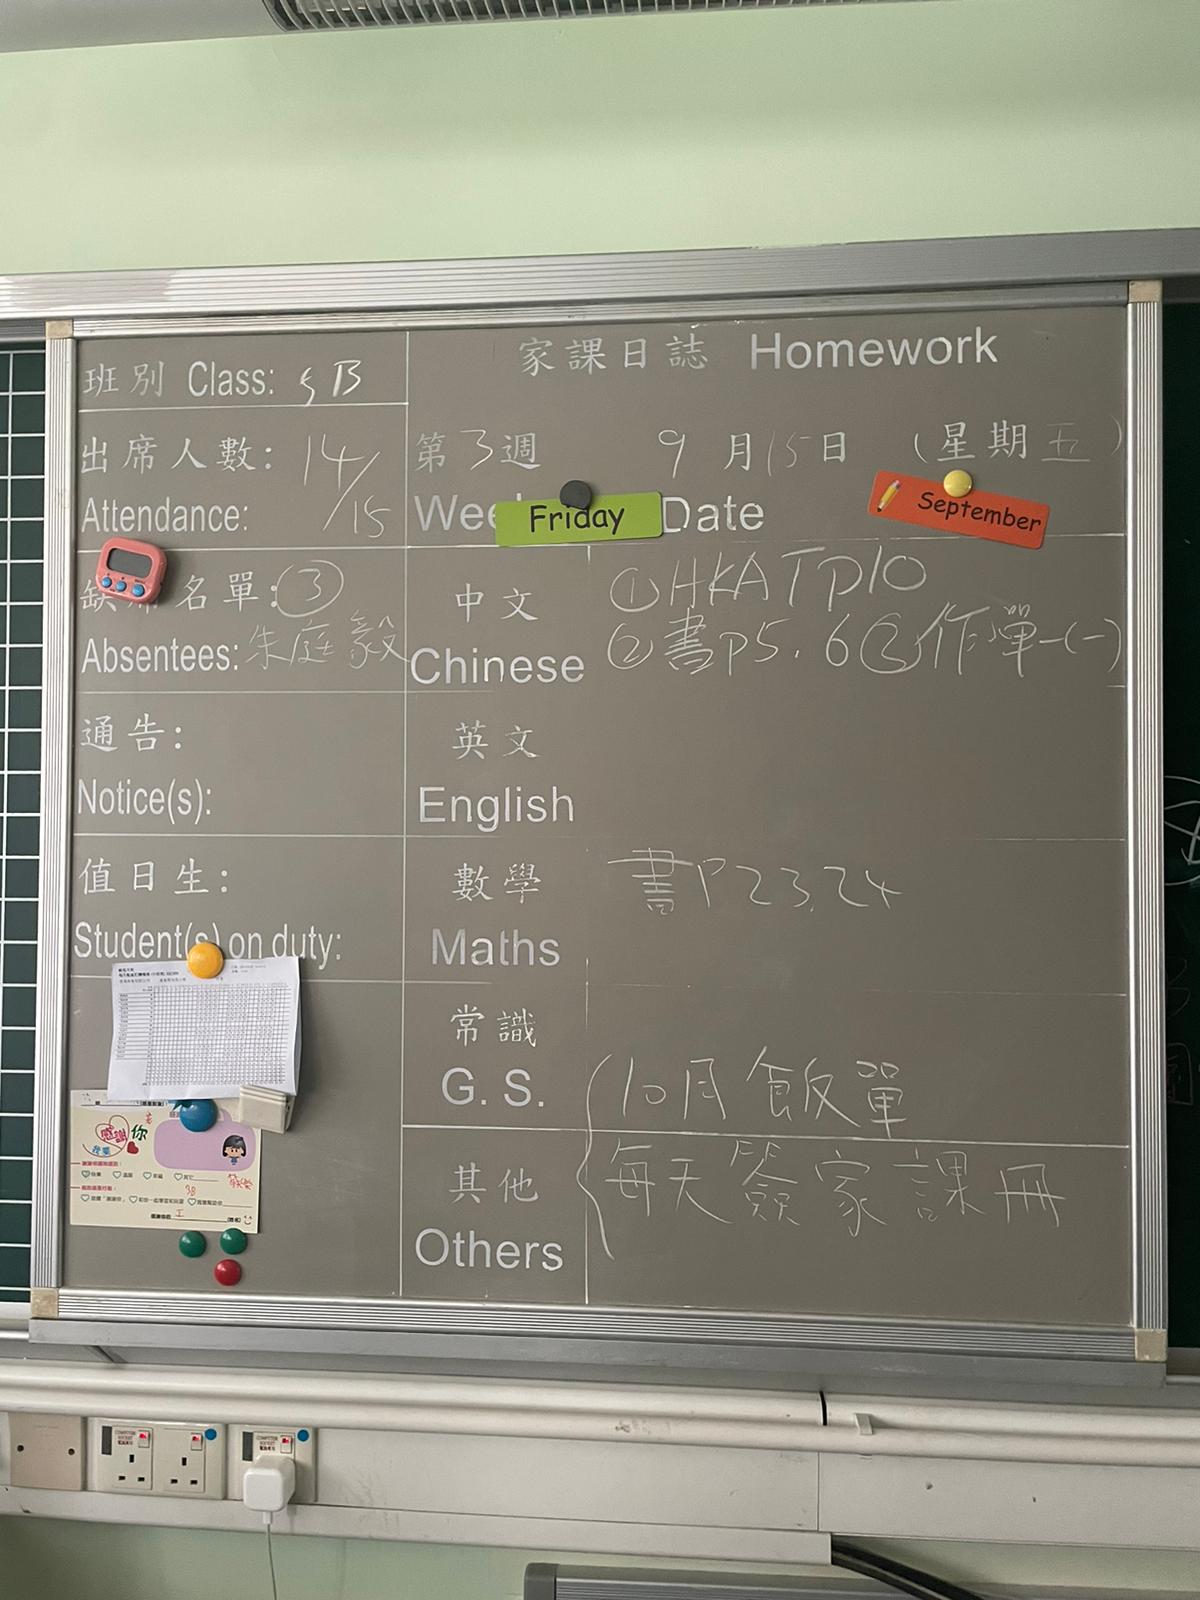 家課日誌 Homework
班別 Class: 5B
出席人數: 14/15
Attendance:
第3週 9月15日 (星期五)
Friday
Date
September
名單: ③
Absentees: 朱庭毅
通告:
Notice(s):
值日生:
Student(s) on duty:
中文 ① HKAT p10
Chinese ② 書p5.6 ③ 作單一(一)
英文
English
數學 書P23.24
Maths
常識
G. S. 10月飯單
其他 每天簽家課冊
Others
感謝你